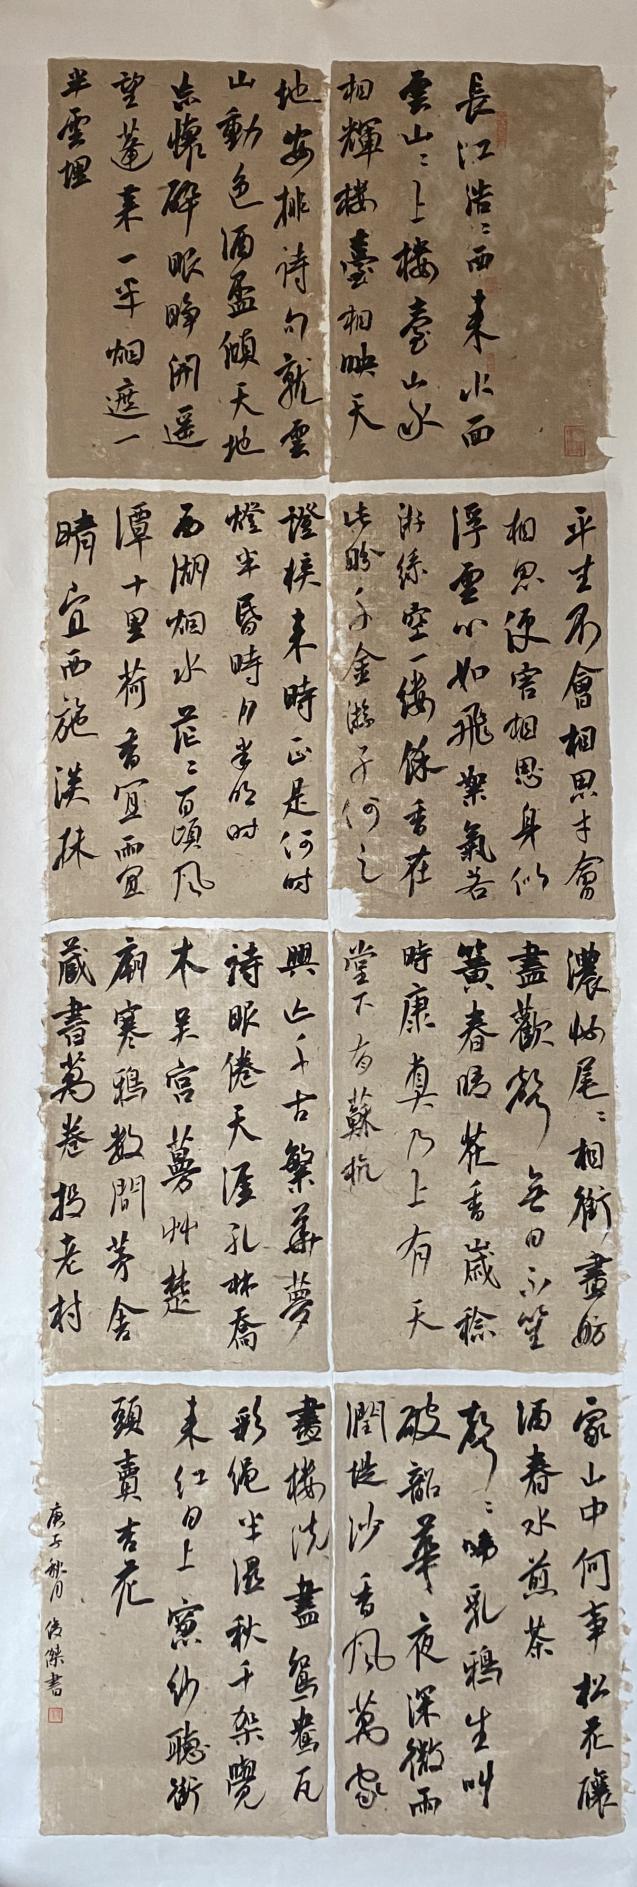 長江浩〻西来水面
雲山〻上樓臺山水
相輝樓臺相映天
地安排詩句就雲
山動色酒盃傾天地
忘懷醉眼睁開遥
望蓬莱一半烟遮一
半雲埋
平生不會相思才會
相思便害相思身似
浮雲心如飛絮氣若
游絲空一縷餘香在
此盼千金游子何之
證候来時正是何时
燈半昏時月半明时
西湖烟水茫〻百頃風
潭十里荷香宜雨宜
晴宜西施淡抹
濃妝尾〻相銜畫舫
盡歡聲無日不笙
簧春暖花香歲稔
時康真乃上有天
堂下有蘇杭
興亡千古繁華夢
詩眼倦天涯孔林喬
木吴宫蔓艸楚
廟寒鴉數間茅舍
藏書萬卷投老村
家山中何事松花釀
酒春水煎茶
聲〻啼乳鴉生叫
破韶華夜深微雨
潤堤沙香風萬家
畫樓洗盡鴛鴦瓦
彩繩半濕秋千架覺
来红日上窗紗聽街
頭賣杏花
庚子秋月俊傑書